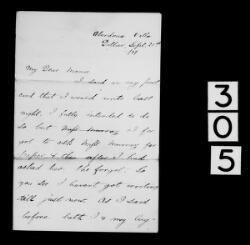 Aberdona Villa
Dollar Sept. 20th
My Dear Mama
I said in my first
card that I would write last
night. I fully intended to do
so but Miss Murray & I for
got to ask Miss Murray for
paper & then after I had
asked her she forgot. So
you see I haven't got writing
till just now. As I said
before both I & my lug-
305